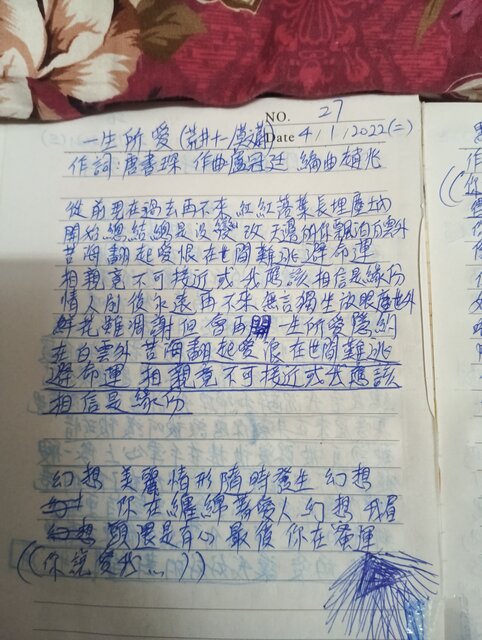 NO. 27
一生所愛(荒井十一莫蕭
Date 4/1/2022(二)
作詞:唐書琛 作曲盧冠廷 編曲趙兆
從前現在過去再不來 紅紅落葉長埋塵土內
開始總結總是没變改 天邊的你飄泊白雲外
苦海翻起愛恨在世間難逃避命運
相親竟不可接近或我應該相信是緣份
情人別後永遠再不來 無言獨坐放眼塵世外
鮮花雖凋謝但會再開 一生所愛隱約
在白雲外 苦海翻起愛浪在世間難逃
避命運 相親竟不可接近或我應該
相信是緣份
幻想 美麗 情形隨時發生 幻想
你在纏綿著愛人 幻想 我
還是有心 最後 你在
((你說愛我...))